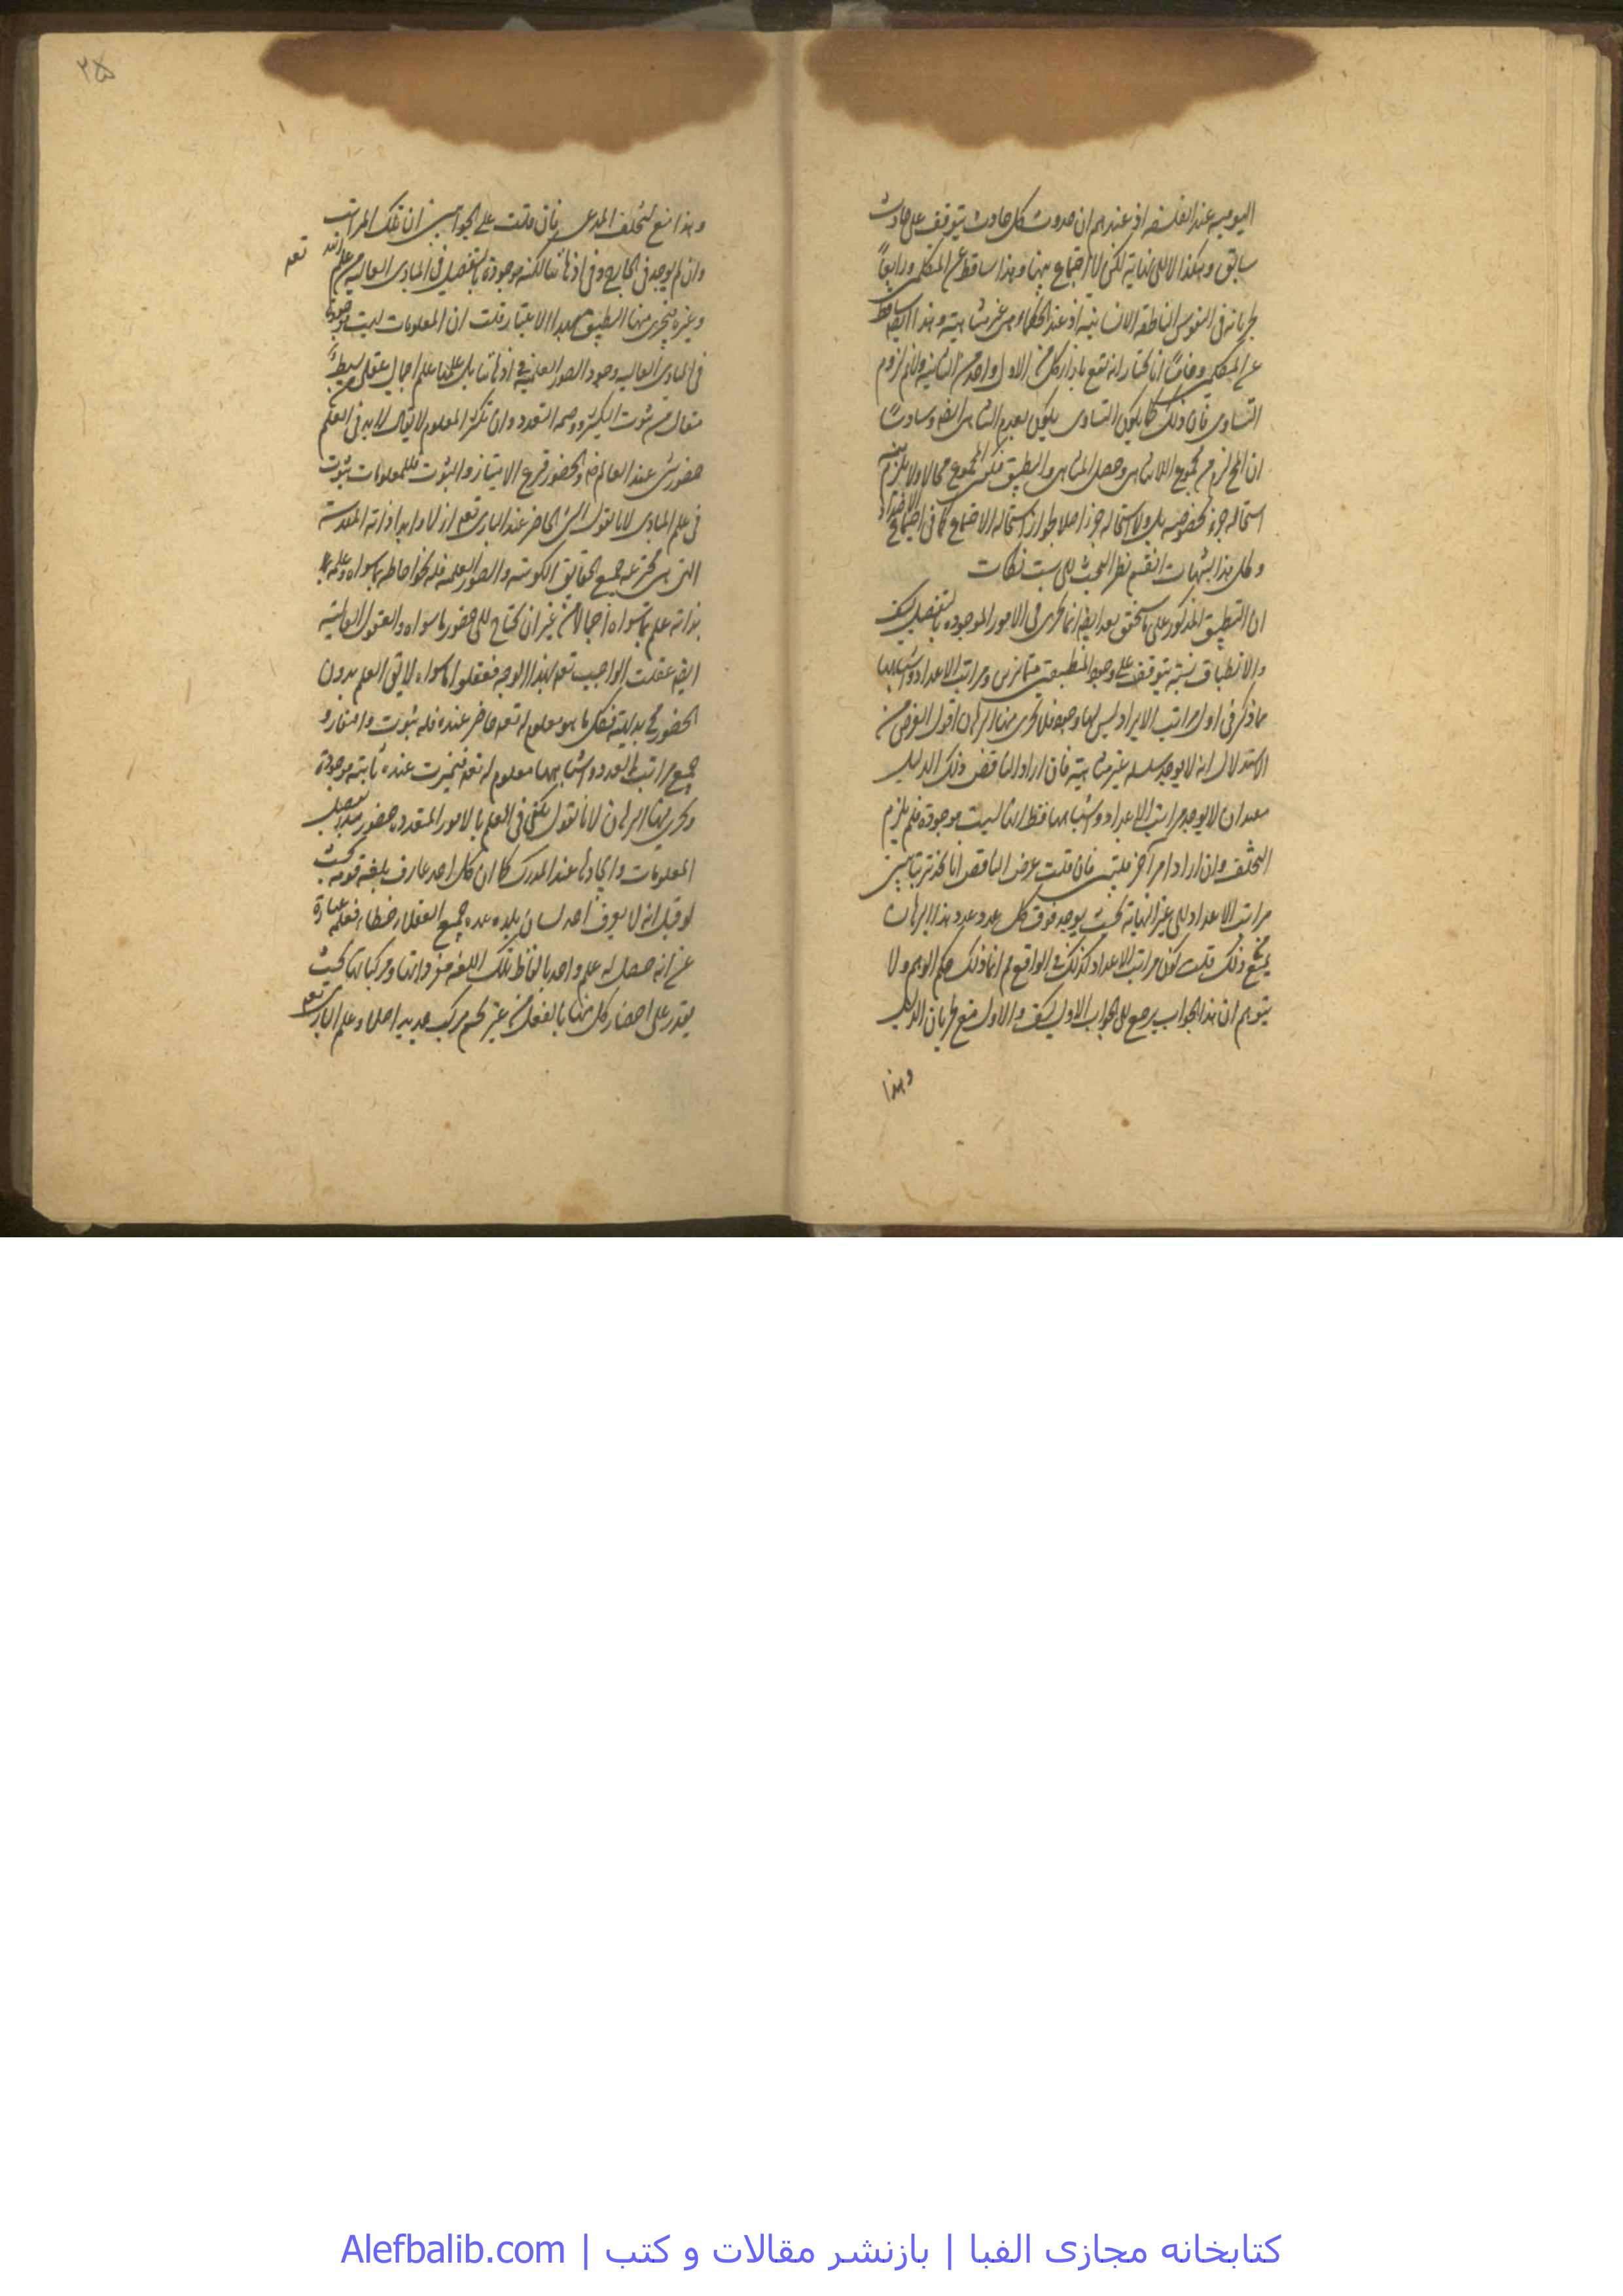 اليومية عند الفلسفه اذ عندهم ان حدوث كل حادث يتوقف على حادث
سابق وهكذا الى النهاية لكن لا اجتماع بينها وهذا ساقط عن المتكلمين ورابعاً
بجريانه فى النفوس الناطقه الانسانية اذ عند الحكماء هى غير متناهية وهذا ايضا ساقط
عن المتكلمين وخامساً انا نختار انه تقع بازاء كل من الاول واحد من الثانية ولا نم لزوم
التساوى فان ذلك كما يكون التساوى يكون لعدم التناهى ايضا وسادساً
ان المح لزم من مجموع اللاتناهى وحصل التناهى والتطبيق فكون المجموع محالا ولا يلزم منه
استحالة جزء بخصوصه بل ولا استحالة جزء اصلا لجواز استحالة الاجتماع كما فى اجتماع الاضداد
ولحل هذا الشبهات انقسم نظر البحث الى ست نكات
ان التطبيق المذكور على ما يتحقق بعد ايضا انما يجرى فى الامور الموجوده بالتفصيل
والانطباق نسبة يتوقف على وجود المنطبقين متمايزين ومراتب الاعداد واشباهها
مما ذكر فى اول مراتب الايراد ليس لها وجود فلا يجرى فيها البرهان اقول الغرض من
الاستدلال انه لا يوجد سلسله غير متناهية فان اراد الناقض ذلك الدليل
بعد ان لا يوجد مراتب الاعداد واشباهها فقط انها ليست بموجودة فلم يلزم
التخلف وان اراد امرا آخر فليبين فان قلت غرض الناقض انا نجد ترتباً بين
مراتب الاعداد الى غير النهاية بحيث يوجد فوق كل عدد عدد وهذا البرهان
يمنع ذلك قلت كون مراتب الاعداد كذلك فى الواقع مم انما ذلك حكم الوهم ولا
يتوهم ان هذا الجواب يرجع الى الجواب الاول والاول منع جريان الدليل
وهذا
٢٥
وهذا منع لتخلف المدعى فان قلت على الجوابين ان تلك المراتب
وان لم يوجد فى الخارج وفى اذهاننا لكنه موجودة بالتفصيل فى المبادى العاليه من علم الله تعه
وغيره فيجرى فيها التطبيق بهذا الاعتبار قلت ان المعلومات ليست موجودة
فى المبادى العاليه وجود الصور العلمية فى اذهاننا بل علمها علم اجمالى عقلى بسيط
متعال من ثبوت الكثرة وصمة التعدد وان تكثر المعلوم لا يقال لابد فى العلم
حضور شئ عند العالم والحضور فرع الامتياز والثبوت فللمعلومات ثبوت
فى علم المبادى لانا نقول الشئ الحاضر عند البارى تعه ازلا وابدا ذاته المقدسة
التى هى مخترعه جميع الحقايق الكونيه والصور العلمية فله نحو احاطه بما سواه وعلمه
بذاته علم بما سواه اجمالا من غير ان يحتاج الى حضور ما سواه والعقول العالية
ايضا عقلت الواجب تعه بهذا الوجه فعقلوا ما سواه لا يق العلم بدون
الحضور مح بديهية فكل ما هو معلوم له تعه حاضر عنده فله ثبوت وامتياز و
جميع مراتب العدد واشباهها معلوم له تعه فتميزت عنده ثابتة موجودة
ويجرى فيها البرهان لانا نقول يكفى فى العلم بالامور المتعدده حضور مبدء تفصيل
المعلومات وايجادها عند المدرك كما ان كل احد عارف بلغة قومه بحيث
لو قيل انه لا يعرف احد لسان بلده عده جميع العقلاء خطاء فعلمه عبارة
عن انه حصل له علم واحد بالفاظ تلك اللغه مفرداتها ومركباتها بحيث
يقتدر على احضار كل منها بالفعل من غير تجشم كسب جديد اصلا وعلم البارى تعه
كتابخانه مجازى الفبا | بازنشر مقالات و كتب | Alefbalib.com